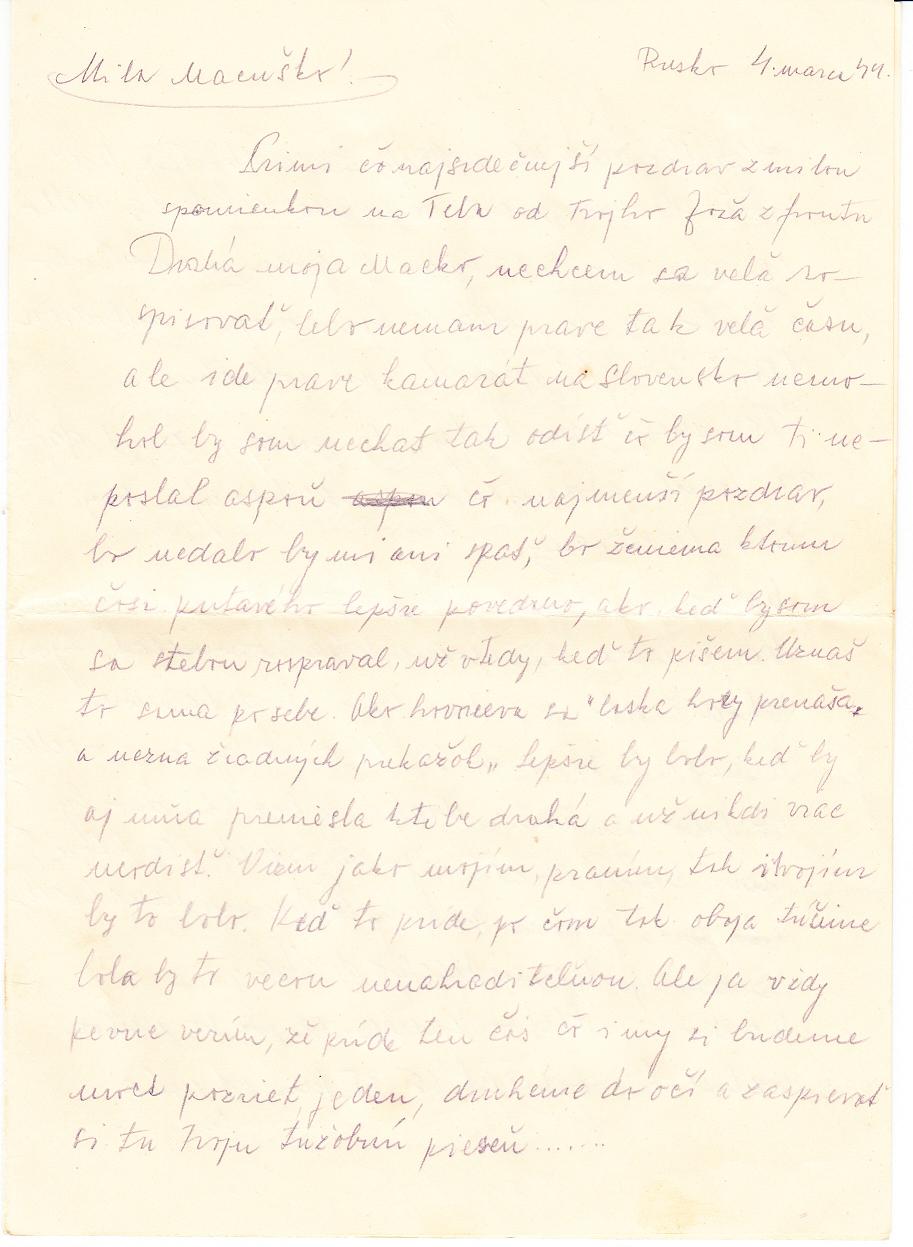 Rusko 4. marca 44.
Milá Macuško!
Primi čo najsrdečnejší pozdrav z milou
spomienkou na Teba od tvojho Joža z frontu
Drahá moja Macko, nechcem sa velă ro-
spisovať, lebo nemam prave tak velă času,
ale ide prave kamarát na Slovensko nemo-
hol by som nechat tak odísť čo by som ti ne-
poslal aspoň čo najmenší pozdrav,
bo nedalo by mi ani spať, bo ženiema ktomu
čosi putavého lepšie povedano, ako keď bysom
sa stebou rospraval, už vtedy, keď to pišem. Uznaš
to sama po sebe. Ako hovorieva sa "laska hory prenaša,
a nezna žiadných prekažok„ lepšie by bolo, keď by
aj mňa premiesla ktebe drahá a už nikdi viac
neodisť. Viem jako mojím, praním, tak itvojím
by to bolo. Keď to príde, po čom tak oboja túžime
bola by to vecou nenahraditeľnou. Ale ja vždy
pevne verím, že príde ten čas čo i my si budeme
moct pozriet, jeden, druhéme do očí a zaspievať
si tu tvoju tužobnú pieseň.......